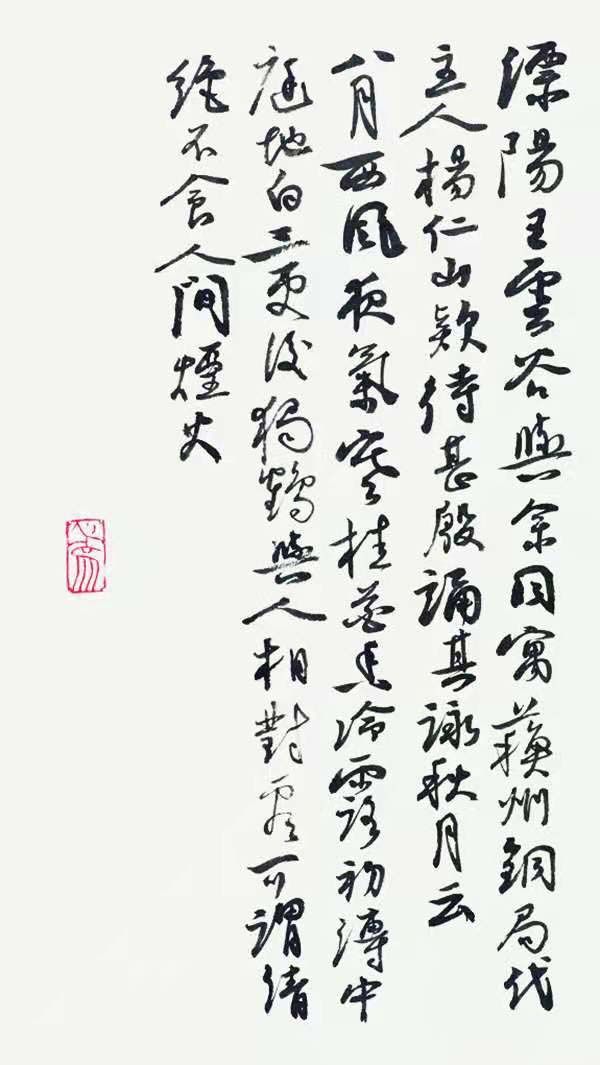 溧陽王雲谷與余同寓蘓州銅局代
主人楊仁山欵待甚殷誦其詠秋月云
八月西風夜氣寒桂花香冷露初漙中
庭地白三更後獨鶴與人相對看可謂清
絕不食人間煙火